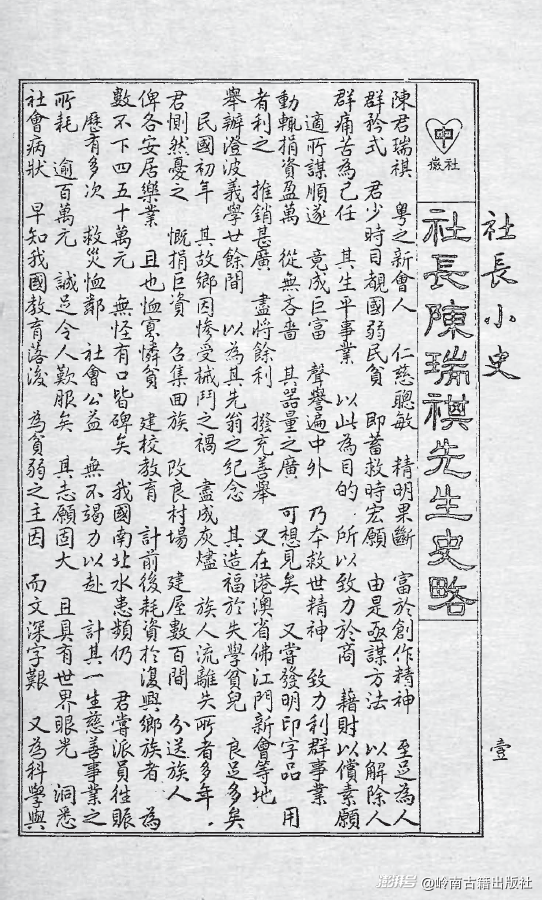 社長小史
壹
中
社徽
社長陳瑞祺先生史略
陳君瑞祺 粵之新會人 仁慈聰敏 精明果斷 富於創作精神 至足為人
群矜式 君少時目覩國弱民貧 即蓄救時宏願 由是亟謀方法 以解除人
群痛苦為己任 其生平事業 以此為目的 所以致力於商 藉財以償素願
適所謀順遂 竟成巨富 聲譽遍中外 乃本救世精神 致力利群事業
動輒捐資盈萬 從無吝嗇 其器量之廣 可想見矣 又嘗發明印字品 用
者利之 推銷甚廣 盡將餘利 撥充善舉 又在港澳省佛江門新會等地
舉辦澄波義學廿餘間 以為其先翁之紀念 其造福於失學貧兒 良足多矣
民國初年 其故鄉因慘受械鬥之禍 盡成灰燼 族人流離失所者多年
君惻然憂之 慨捐巨資 召集回族 改良村場 建屋數百間 分送族人
俾各安居樂業 且也恤寡憐貧 建校教育 計前後耗資於復興鄉族者 為
數不下四五十萬元 無怪有口皆碑矣 我國南北水患頻仍 君嘗派員往賑
歷有多次 救災恤鄰 社會公益 無不竭力以赴 計其一生慈善事業之
所耗 逾百萬元 誠足令人歎服矣 其志願固大 且具有世界眼光 洞悉
社會病狀 早知我國教育落後 為貧弱之主因 而文深字艱 又為科學與
澎湃号 @岭南古籍出版社